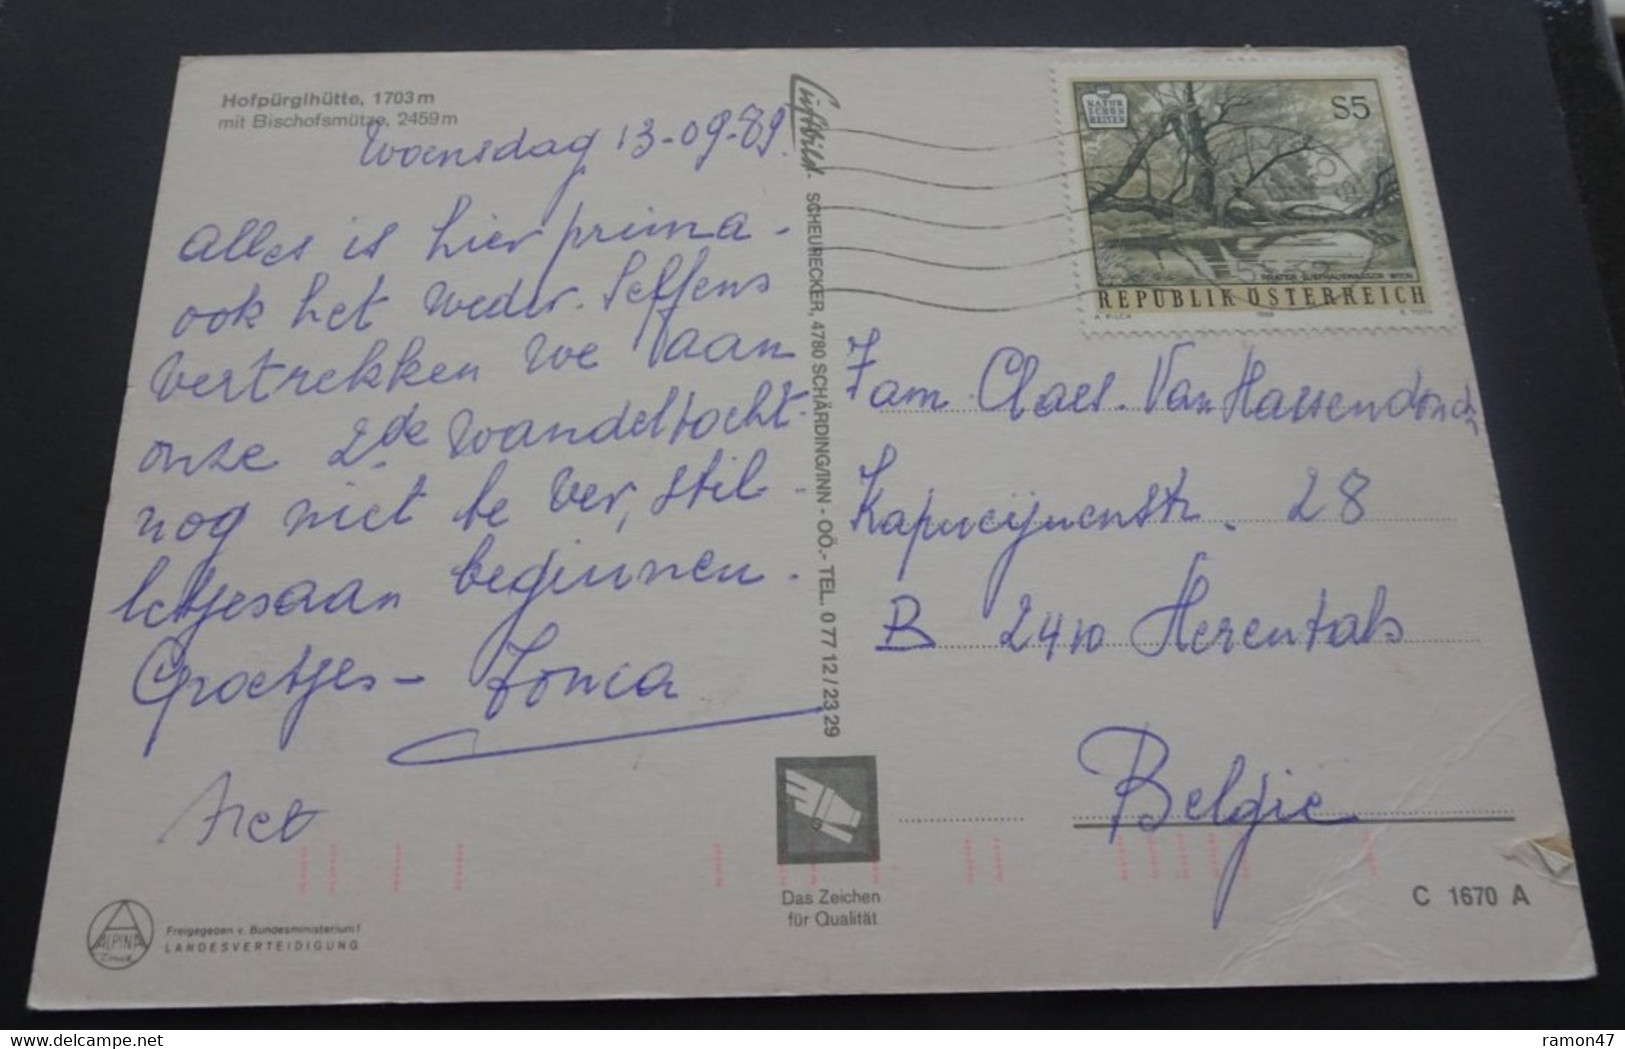 Hofpürglhütte, 1703 m
mit Bischofsmütze, 2459 m
Woensdag 13-09-89.
Alles is hier prima -
ook het weder. Seffens
vertrekken we aan
onze 2de wandeltocht.
nog niet te ver, stil -
letjesaan beginnen.
Groetjes -
Luftbild - SCHEURECKER, 4780 SCHÄRDING/INN - OÖ.- TEL. 0 77 12 / 23 29
NATUR
SCHÖN
REITEN
S5
PRATER WIEN
REPUBLIK ÖSTERREICH
A. PILCH 1988
Fam. Claes. Van Hassendonck
Kapucijnenstr. 28
B 2410 Herentals
België
Das Zeichen
für Qualität
C 1670 A
ALPINA
Freigegeben v. Bundesministerium f
LANDESVERTEIDIGUNG
www.delcampe.net
ramon47